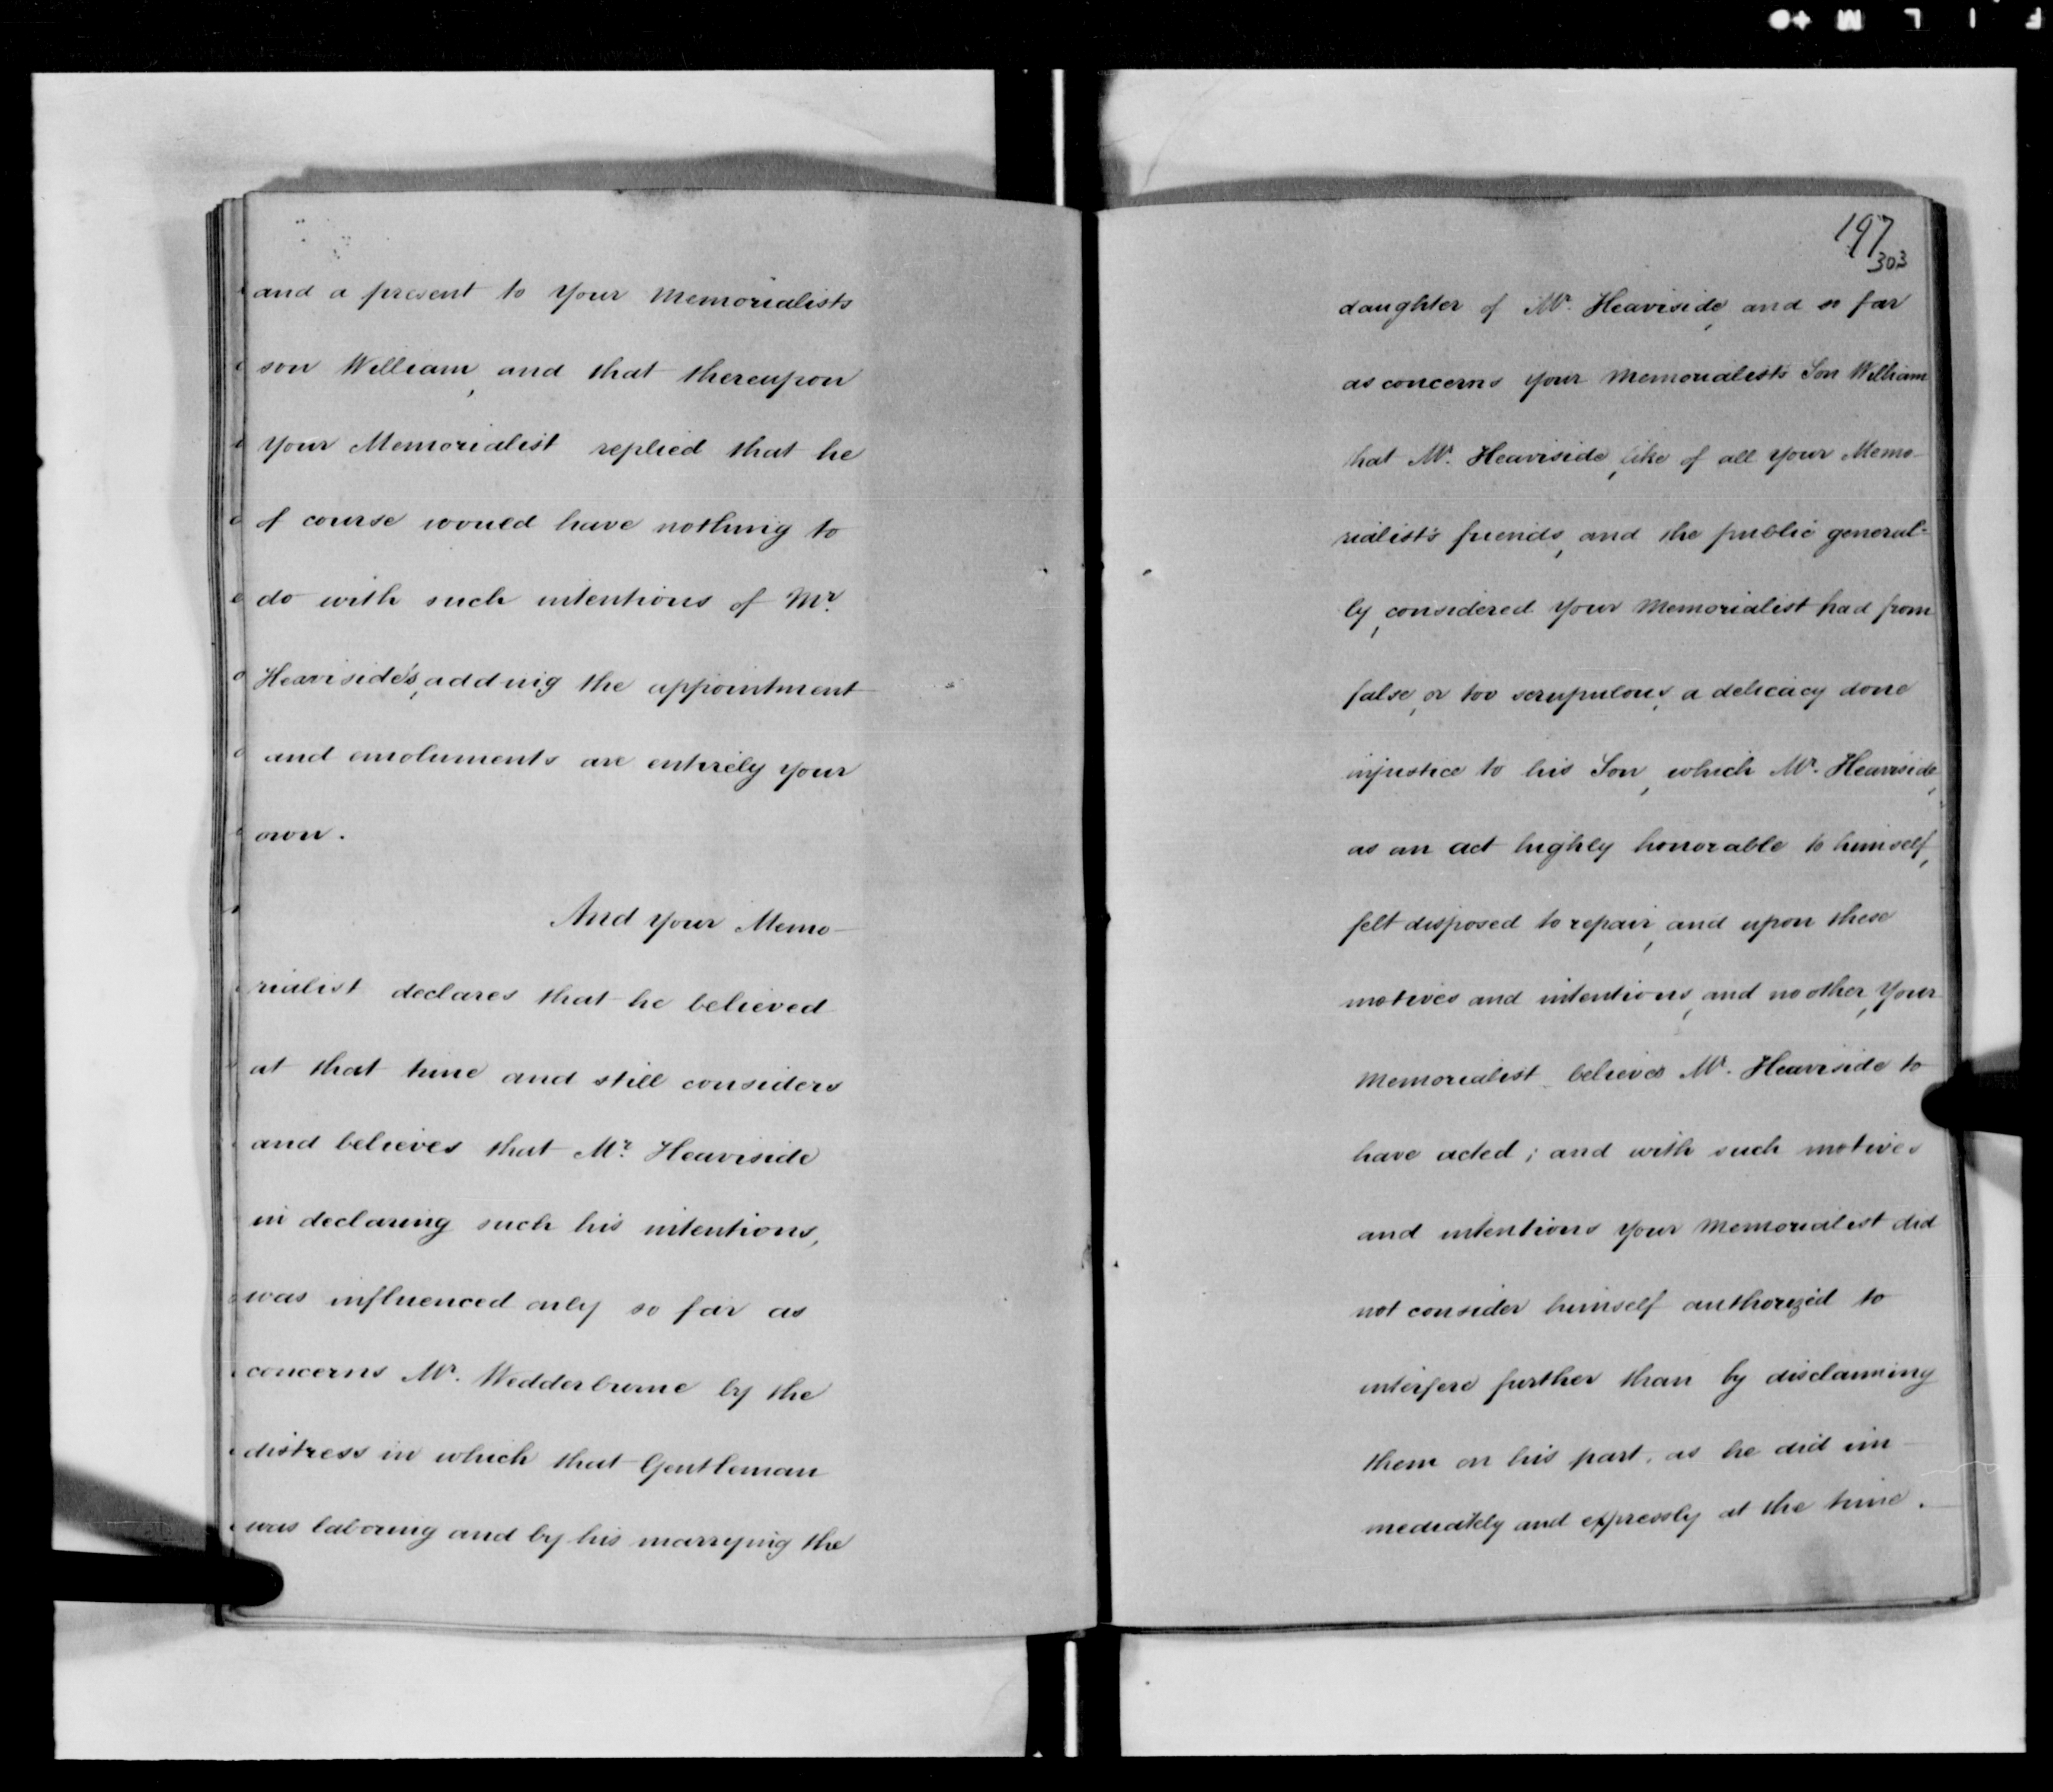 and a present to your Memorialists
son William, and that thereupon
your Memorialist replied that he
of course would have nothing to
do with such intentions of Mr.
Heaviside's, adding the appointment
and emoluments are entirely your
own.
And your Memo-
rialist declares that he believed
at that time and still considers
and believes that Mr. Heaviside
in declaring such his intentions,
was influenced only so far as
concerns Mr. Wedderburne by the
distress in which that Gentleman
was laboring and by his marrying the
197
303
daughter of Mr. Heaviside, and so far
as concerns your Memorialist's Son William
that Mr. Heaviside, like of all your Memo-
rialist's friends, and the public general-
ly, considered your Memorialist had from
false, or too scrupulous, a delicacy done
injustice to his Son, which Mr. Heaviside,
as an act highly honorable to himself,
felt disposed to repair, and upon these
motives and intentions, and no other, your
Memorialist believes Mr. Heaviside to
have acted; and with such motives
and intentions your Memorialist did
not consider himself authorized to
interfere further than by disclaiming
them on his part, as he did im-
mediately and expressly at the time.
F I L M